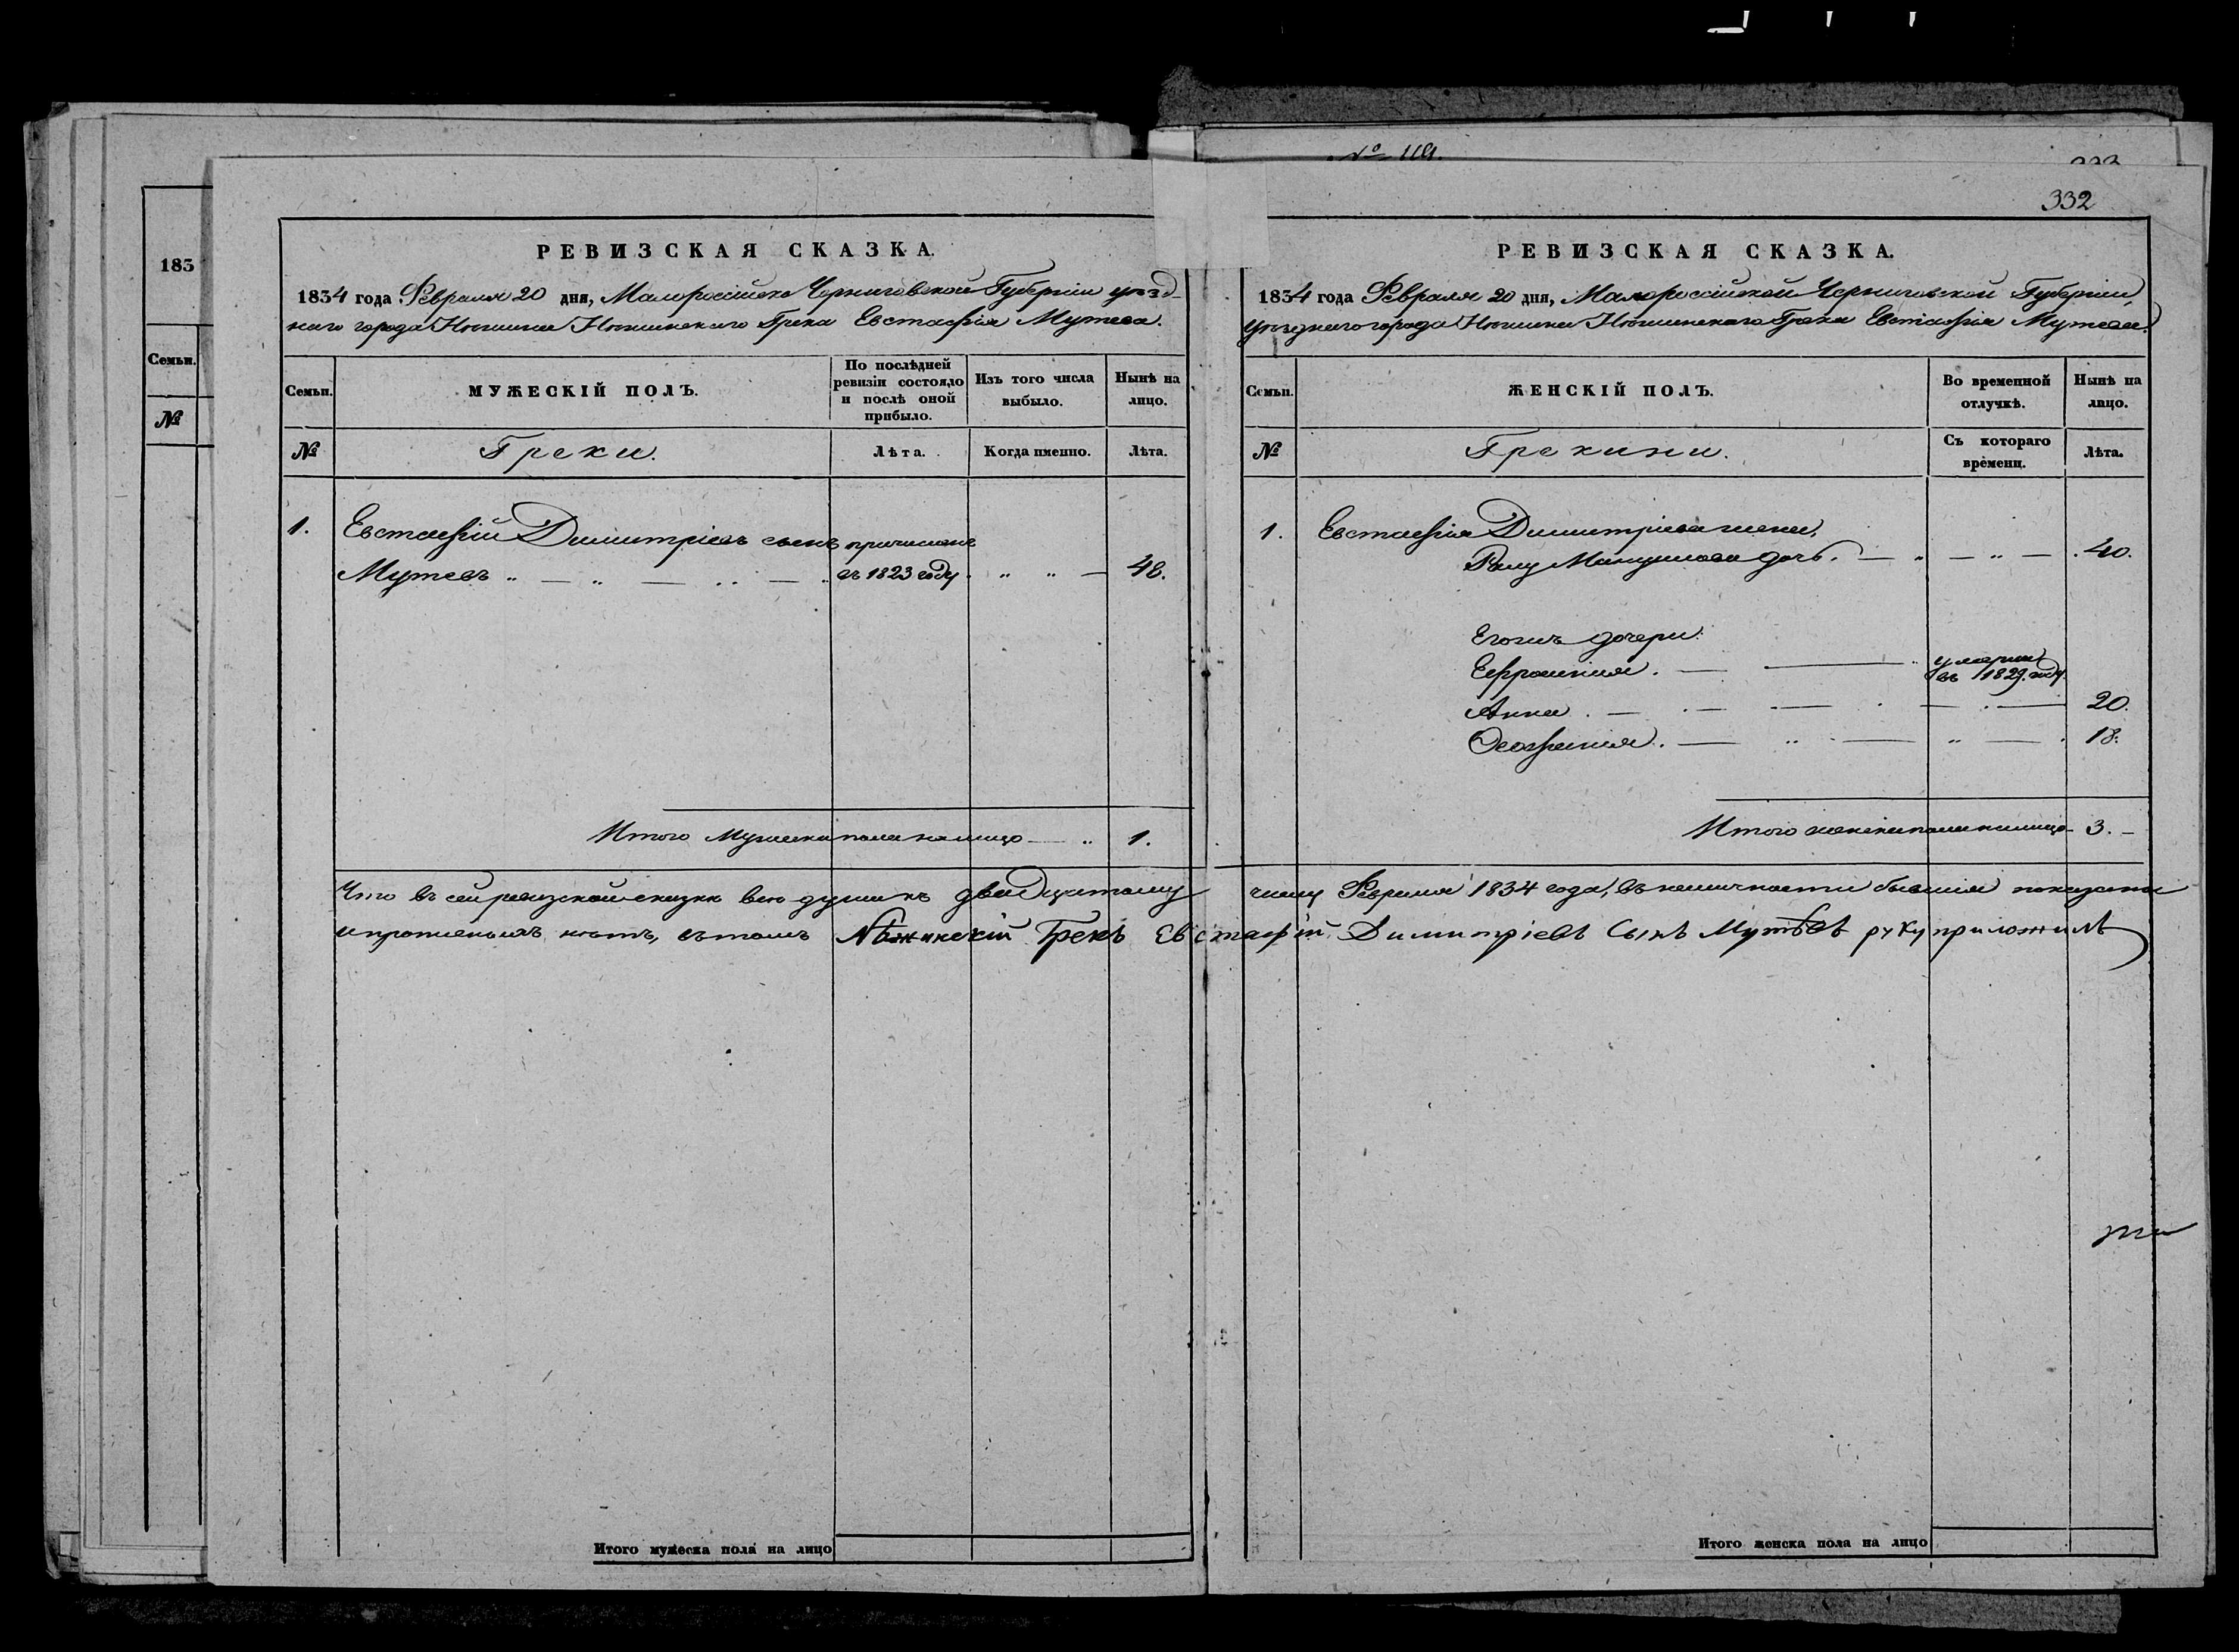 № 119.
332
183
Семьи.
№
РЕВИЗСКАЯ СКАЗКА.
1834 года Февраля 20 дня, Малоросійско Черниговской Губерніи уѣзд-
наго города Нѣжина Нѣжинскаго Грека Евстафія Мутева.
Семьи.
МУЖЕСКІЙ ПОЛЪ.
По послѣдней
ревизіи состояло
и послѣ оной
прибыло.
Изъ того числа
выбыло.
Нынѣ на
лицо.
№
Греки.
Лѣта.
Когда именно.
Лѣта.
1. Евстафій Димитріевъ сынъ причисленъ
Мутевъ въ 1823 году 48.
Итого Мужеска пола на лицо 1.
РЕВИЗСКАЯ СКАЗКА.
1834 года Февраля 20 дня, Малоросійской Черниговской Губерніи,
уѣзднаго города Нѣжина Нѣжинскаго Грека Евстафія Мутева.
Семьи.
ЖЕНСКІЙ ПОЛЪ.
Во временной
отлучкѣ.
Нынѣ на
лицо.
№
Грекини.
Съ котораго
времени.
Лѣта.
1. Евстафія Димитріева жена,
Манушова дочь. 40.
Егожъ дочери:
Ефросинія. умерша
въ 1829. году.
Анна 20.
Феофанія. 18.
Итого женска пола на лицо 3.
Что въ сей ревизской сказкѣ всѣ души къ двадцатому числу Февраля 1834 года, въ наличности бывшія показаны
и прописныхъ нѣтъ, въ томъ Нѣжинскій Грекъ Евстафій Димитріевъ Сынъ Мутѣвъ руку приложилъ
Итого мужеска пола на лицо
Итого женска пола на лицо